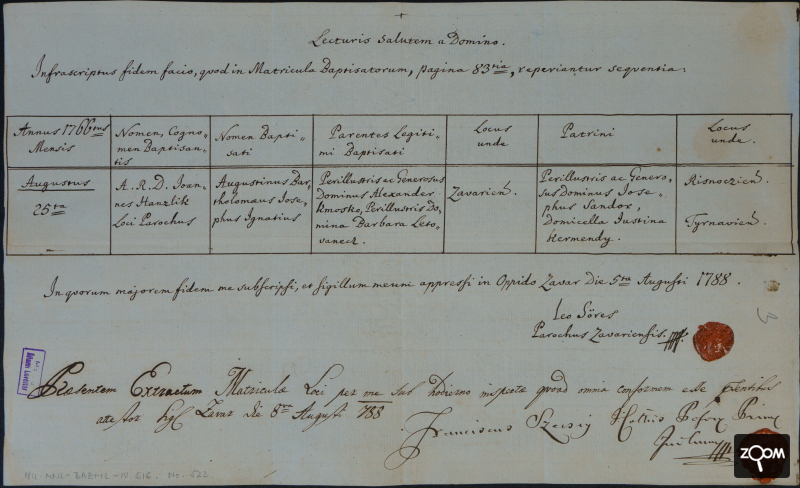 Lecturis Salutem a Domino.
Infrascriptus fidem facio, quod in Matricula Baptisatorum, pagina 83tia, reperiantur sequentia:
Annus 1766tus
Mensis
Nomen, Cogno„
men Baptisan„
tis
Nomen Bapti„
sati
Parentes Legiti„
mi Baptisati
Locus
unde
Patrini
Locus
unde.
Augustus
25ta
A. R. D. Ioan„
nes Hanzlik
Loci Parochus
Augustinus Bar„
tholomaus Iose„
phus Ignatius
Perillustris ac Generosus
Dominus Alexander
Kmosko, Perillustris Do„
mina Barbara Leto„
vanecz.
Zavarien.
Perillustris ac Genero„
sus Dominus Iose„
phus Sandor,
Domicella Iustina
Kermendy.
Risnoczien.
Tyrnavien.
In quorum majorem fidem me subscripsi, et sigillum meum appressi in Oppido Zavar Die 5ta Augusti 1788.
Leo Söres
Parochus Zavariensis.
Praesentem Extractum Matriculae Loci per me sub hodierno inspectae quoad omnia conformem esse
attestor Zavar die 8va Augusti 788
Franciscus
HU-MNL-ZAEML-IV. 616. No. 522
ZOOM